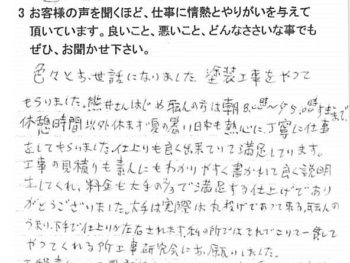 3 お客様の声を聞くほど、仕事に情熱とやりがいを与えて
頂いています。良いこと、悪いこと、どんなささいな事でも
ぜひ、お聞かせ下さい。
色々とお世話になりました 塗装工事をやって
もらいました。熊井さんはじめ職人の方は朝8時〜夕5時まで、
休憩時間以外休まず夏の暑い日本も熱心に、丁寧に仕事
をしてもらいました。仕上りも良く出来ていて満足しています。
工事の見積りも素人にもわかりやすく書かれて良く説明
をしてくれ、料金も大手の で満足する仕上げであり
がとうございました。大手は実際は丸投げであって来る職人の
うまい、下手で仕上りが左右されます。私の所ではそれでこり一貫して
やってくれる所工事研究会にお願いしました。